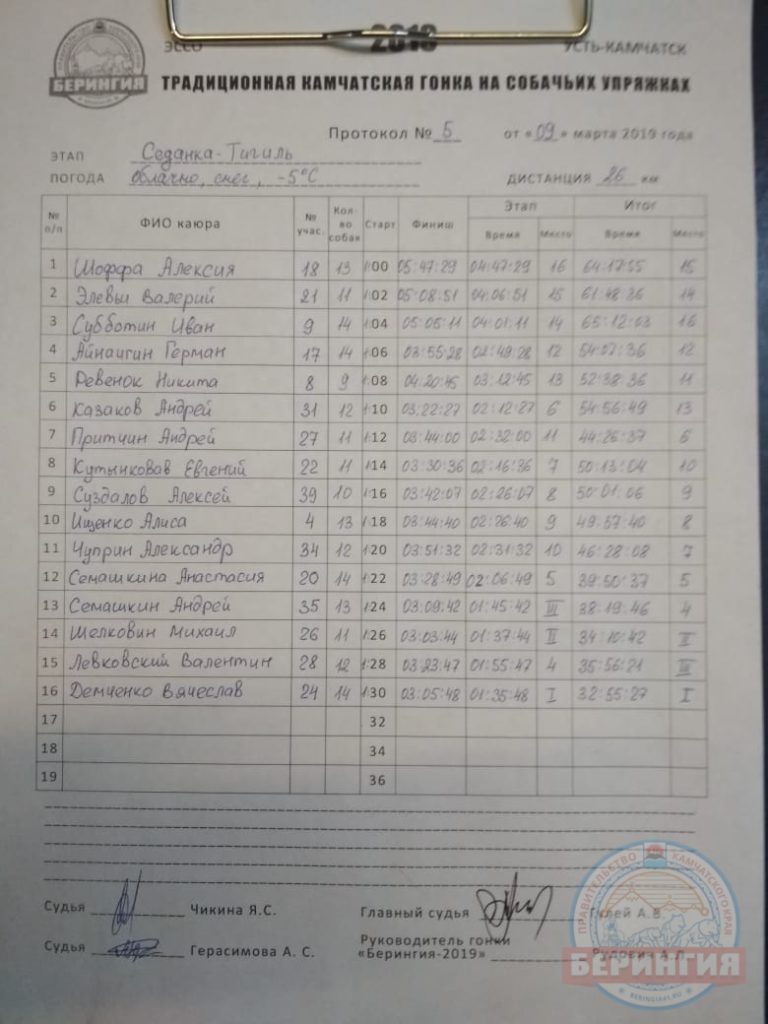 ПРАВИТЕЛЬСТВО КАМЧАТСКОГО КРАЯ
БЕРИНГИЯ
ЭССО 2019 УСТЬ-КАМЧАТСК
ТРАДИЦИОННАЯ КАМЧАТСКАЯ ГОНКА НА СОБАЧЬИХ УПРЯЖКАХ
Протокол № 5 от «09» марта 2019 года
ЭТАП Седанка-Тигиль
ПОГОДА облачно, снег, -5°С ДИСТАНЦИЯ 26 км
№ п/п ФИО каюра № учас. Кол-во собак Старт Финиш Этап Итог
Время Место Время Место
1 Шоффа Алексия 18 13 1:00 05:47:29 04:47:29 16 64:17:55 15
2 Элевы Валерий 21 11 1:02 05:08:51 04:06:51 15 61:48:36 14
3 Субботин Иван 9 14 1:04 05:05:11 04:01:11 14 65:12:03 16
4 Айнаугин Герман 17 14 1:06 03:55:28 02:49:28 12 54:07:36 12
5 Ревенок Никита 8 9 1:08 04:20:45 03:12:45 13 52:38:36 11
6 Казаков Андрей 31 12 1:10 03:22:27 02:12:27 6 54:56:49 13
7 Притчин Андрей 27 11 1:12 03:44:00 02:32:00 11 44:26:37 6
8 Кутынковав Евгений 22 11 1:14 03:30:36 02:16:36 7 50:13:04 10
9 Суздалов Алексей 39 10 1:16 03:42:07 02:26:07 8 50:01:06 9
10 Ищенко Алиса 4 13 1:18 03:44:40 02:26:40 9 49:57:40 8
11 Чуприн Александр 34 12 1:20 03:51:32 02:31:32 10 46:28:08 7
12 Семашкина Анастасия 20 14 1:22 03:28:49 02:06:49 5 39:50:37 5
13 Семашкин Андрей 35 13 1:24 03:09:42 01:45:42 III 38:19:46 4
14 Шелковин Михаил 26 11 1:26 03:03:44 01:37:44 II 34:10:42 II
15 Левковский Валентин 28 12 1:28 03:23:47 01:55:47 4 35:56:21 III
16 Демченко Вячеслав 24 14 1:30 03:05:48 01:35:48 I 32:55:27 I
17 32
18 34
19 36
Судья Чикина Я.С. Главный судья Гулей А.В.
Судья Герасимова А. С. Руководитель гонки
«Берингия-2019» Рудович А.Л.
ПРАВИТЕЛЬСТВО КАМЧАТСКОГО КРАЯ
БЕРИНГИЯ
BERINGIA41.RU